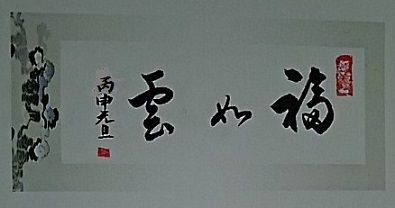 福如雲
丙申元旦